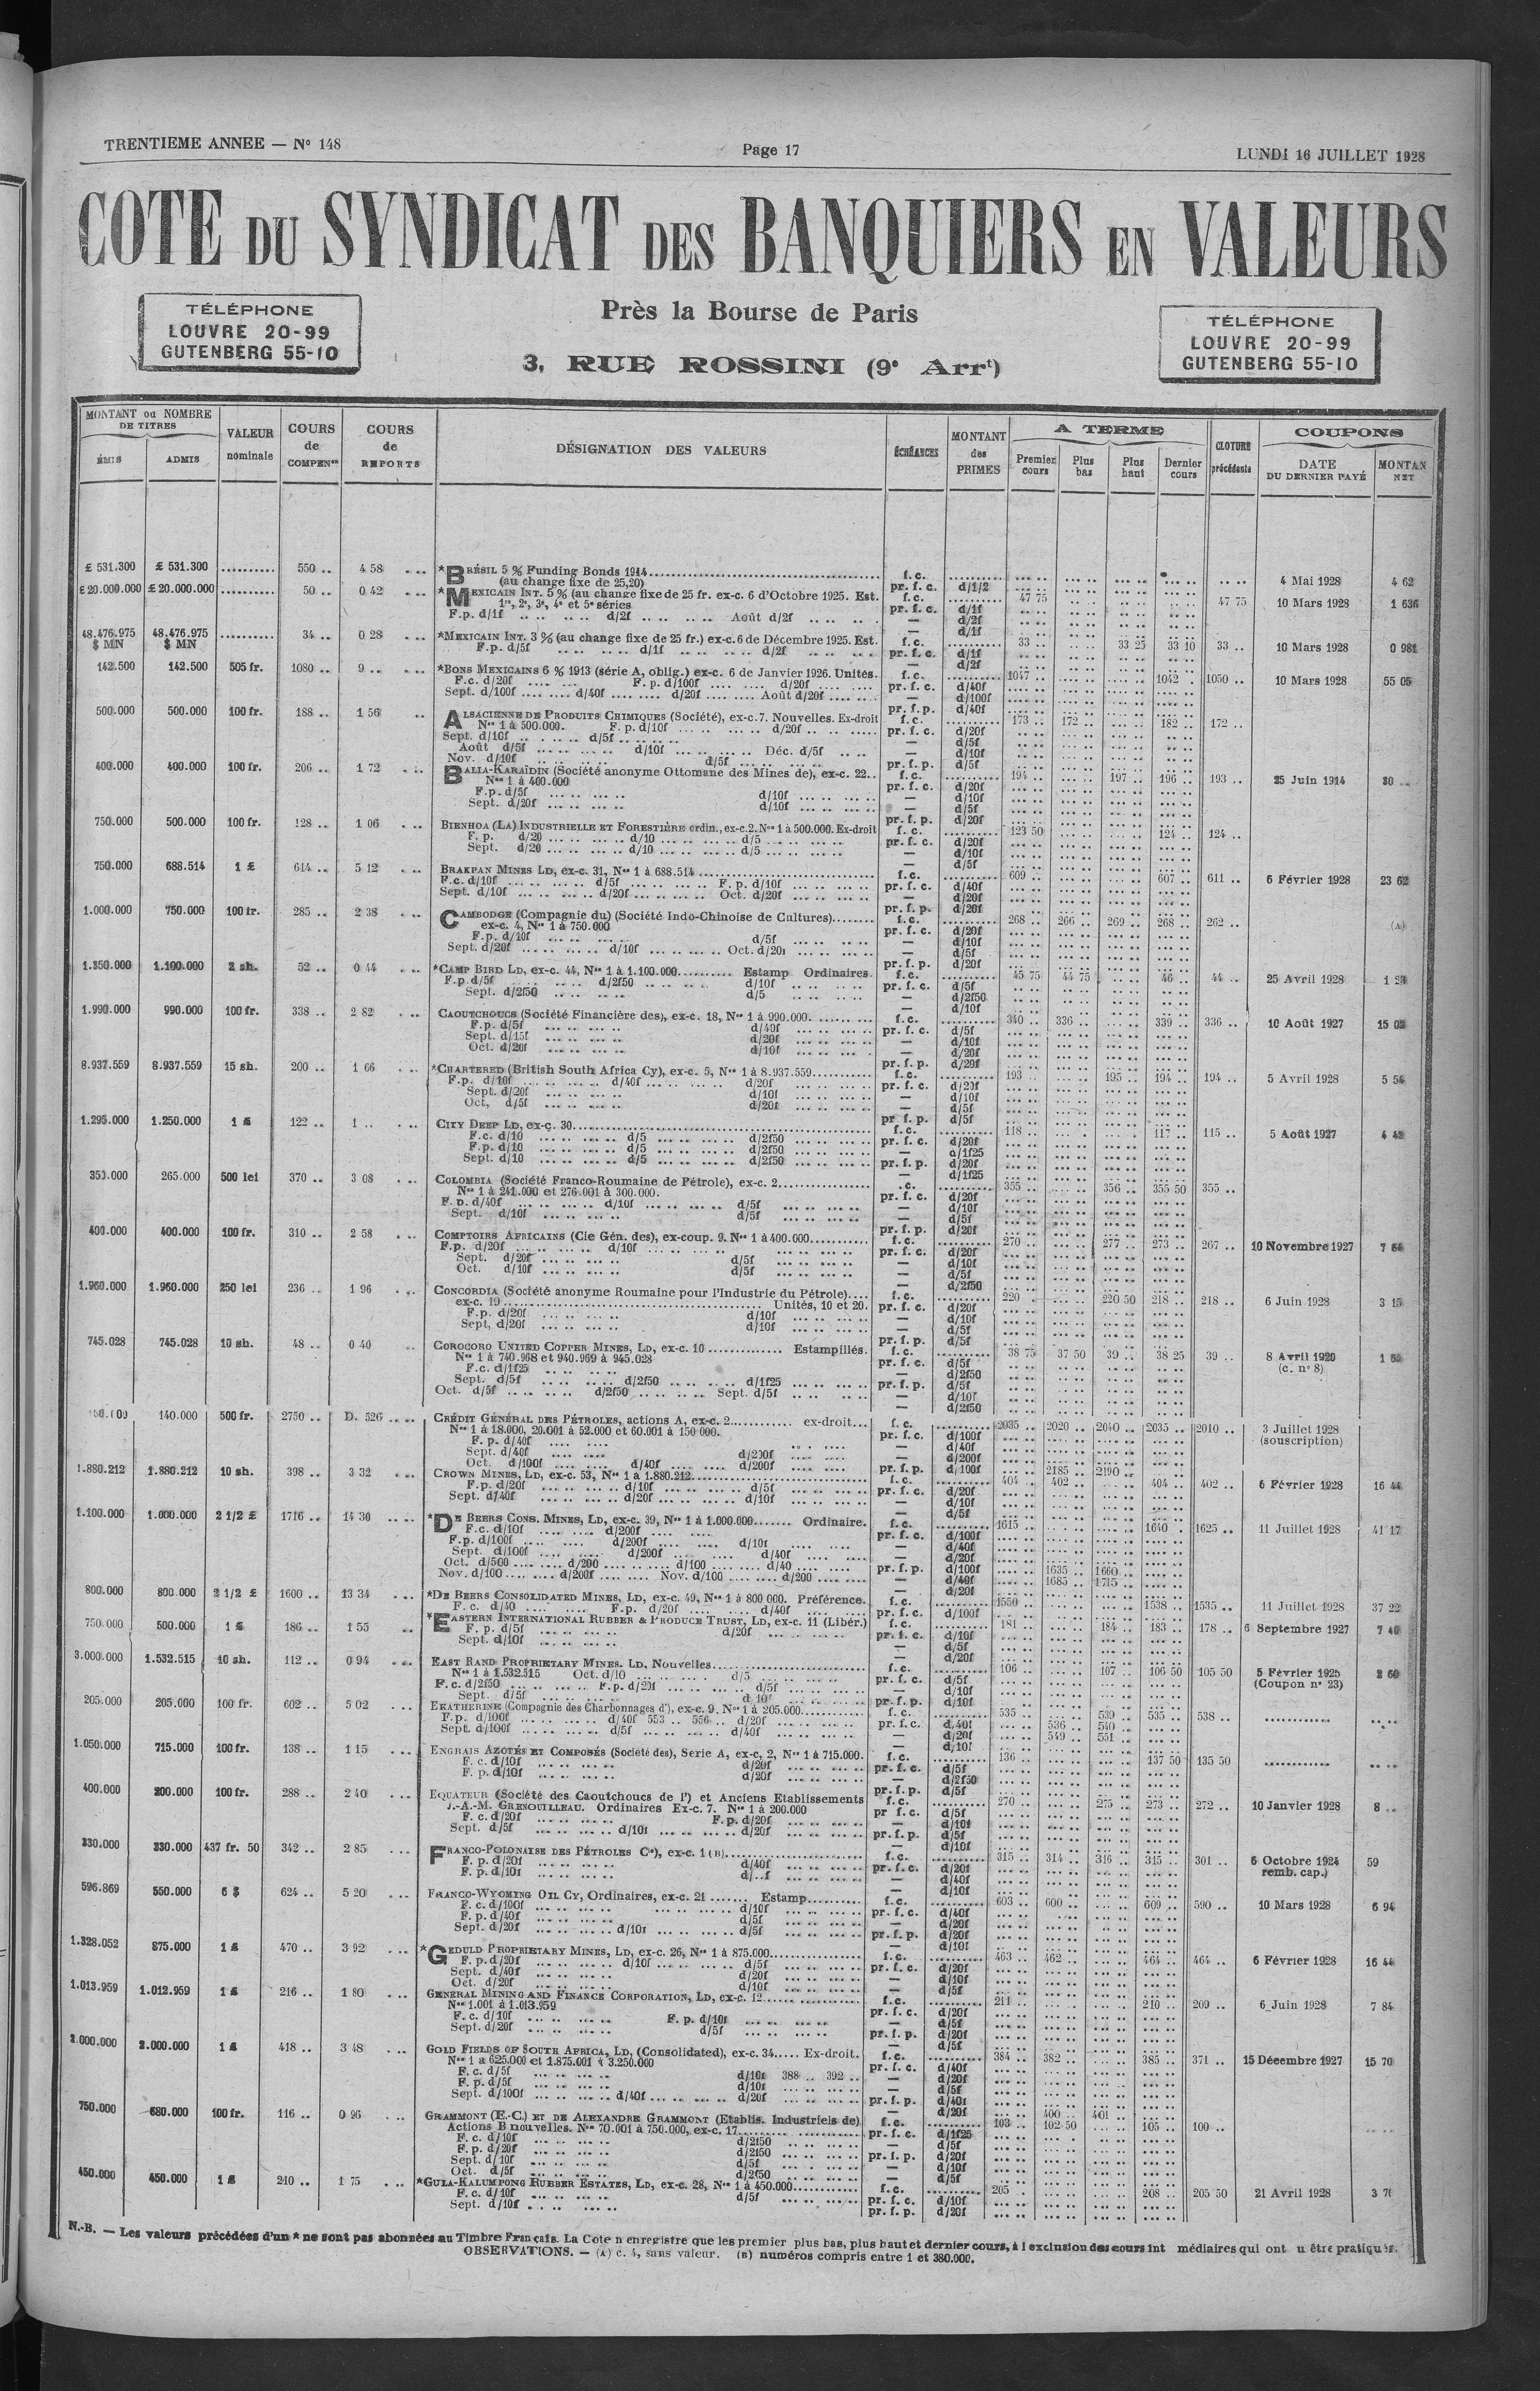 TRENTIEME ANNEE — N° 148
Page 17
LUNDI 16 JUILLET 1928
COTE DU SYNDICAT DES BANQUIERS EN VALEURS
TÉLÉPHONE
LOUVRE 20-99
GUTENBERG 55-10
Près la Bourse de Paris
3, RUE ROSSINI (9e Arrt)
TÉLÉPHONE
LOUVRE 20-99
GUTENBERG 55-10
MONTANT ou NOMBRE DE TITRES ÉMIS ADMIS VALEUR nominale COURS de COMPENon COURS de REPORTS DÉSIGNATION DES VALEURS ÉCHÉANCES MONTANT des PRIMES A TERME Premier cours Plus bas Plus haut Dernier cours CLOTURE précédente COUPONS DATE DU DERNIER PAYÉ MONTAN NET
£ 531.300 £ 531.300 .......... 550 .. 4 58 *BRÉSIL 5 % Funding Bonds 1914 f. c. 4 Mai 1928 4 62
(au change fixe de 25,20) pr. f. c. d/1/2
£ 20.000.000 £ 20.000.000 .......... 50 .. 0 42 *MEXICAIN INT. 5 % (au change fixe de 25 fr. ex-c. 6 d'Octobre 1925. Est. f. c. 47 75 47 75 10 Mars 1928 1 636
1re, 2e, 3e, 4e et 5e séries pr. f. c. d/1f
F.p. d/1f d/2f Août d/2f — d/2f
48.476.975 $ MN 48.476.975 $ MN .......... 34 .. 0 28 *MEXICAIN INT. 3 % (au change fixe de 25 fr.) ex-c. 6 de Décembre 1925. Est. f. c. 33 .. 33 25 33 10 33 .. 10 Mars 1928 0 981
F.p. d/5f d/1f d/2f pr. f. c. d/1f
142.500 142.500 505 fr. 1080 .. 9 .. *BONS MEXICAINS 6 % 1913 (série A, oblig.) ex-c. 6 de Janvier 1926. Unités. f. c. 1047 .. 1042 .. 1050 .. 10 Mars 1928 55 05
F.c. d/20f F. p. d/100f d/20f pr. f. c. d/40f
Sept. d/100f d/40f d/20f Août d/20f — d/100f
500.000 500.000 100 fr. 188 .. 1 56 ALSACIENNE DE PRODUITS CHIMIQUES (Société), ex-c. 7. Nouvelles. Ex-droit f. c. 173 .. 172 .. 182 .. 172 ..
Nos 1 à 500.000. F. p. d/10f d/20f pr. f. c. d/20f
Sept. d/10f d/5f — d/5f
Août d/5f d/10f Déc. d/5f — d/10f
Nov. d/10f d/5f pr. f. p. d/5f
400.000 400.000 100 fr. 206 .. 1 72 BALIA-KARAÏDIN (Société anonyme Ottomane des Mines de), ex-c. 22.. f. c. 194 .. 197 .. 196 .. 193 .. 25 Juin 1914 30 ..
Nos 1 à 400.000 pr. f. c. d/20f
F.p. d/5f d/10f — d/10f
Sept. d/20f d/10f — d/5f
750.000 500.000 100 fr. 128 .. 1 06 BIENHOA (LA) INDUSTRIELLE ET FORESTIÈRE ordin., ex-c. 2. Nos 1 à 500.000. Ex-droit f. c. 123 50 124 .. 124 ..
F. p. d/20 d/10 d/5 pr. f. c. d/20f
Sept. d/20 d/10 d/5 — d/10f
750.000 688.514 1 £ 614 .. 5 12 BRAKPAN MINES LD, ex-c. 31, Nos 1 à 688.514 f. c. 609 .. 607 .. 611 .. 6 Février 1928 23 62
F.c. d/10f d/5f F. p. d/10f pr. f. c. d/40f
Sept. d/10f d/20f Oct. d/20f — d/20f
1.000.000 750.000 100 fr. 285 .. 2 38 CAMBODGE (Compagnie du) (Société Indo-Chinoise de Cultures) f. c. 268 .. 266 .. 269 .. 268 .. 262 .. (A)
ex-c. 4, Nos 1 à 750.000 pr. f. c. d/20f
F.p. d/10f d/5f — d/10f
Sept. d/20f d/10f Oct. d/20f — d/5f
1.350.000 1.100.000 2 sh. 52 .. 0 44 *CAMP BIRD LD, ex-c. 44, Nos 1 à 1.100.000 Estamp. Ordinaires. f. c. 45 75 44 75 46 .. 44 .. 25 Avril 1928 1 23
F.p. d/5f d/2f50 d/10f pr. f. c. d/5f
Sept. d/2f50 d/5 — d/2f50
1.990.000 990.000 100 fr. 338 .. 2 82 CAOUTCHOUCS (Société Financière des), ex-c. 18, Nos 1 à 990.000. f. c. 340 .. 336 .. 339 .. 336 .. 10 Août 1927 15 02
F.p. d/5f d/40f pr. f. c. d/5f
Sept. d/15f d/20f — d/10f
Oct. d/20f d/10f — d/20f
8.937.559 8.937.559 15 sh. 200 .. 1 66 *CHARTERED (British South Africa Cy), ex-c. 5, Nos 1 à 8.937.559 f. c. 193 .. 195 .. 194 .. 194 .. 5 Avril 1928 5 54
F.p. d/10f d/40f d/20f pr. f. c. d/20f
Sept. d/20f d/10f — d/10f
Oct. d/5f d/20f — d/5f
1.295.000 1.250.000 1 £ 122 .. 1 .. CITY DEEP LD, ex-c. 30 f. c. 118 .. 117 .. 115 .. 5 Août 1927 4 42
F.c. d/10 d/5 d/2f50 pr. f. c. d/20f
F.p. d/10 d/5 d/2f50 — d/1f25
Sept. d/10 d/5 d/2f50 pr. f. p. d/20f
350.000 265.000 500 lei 370 .. 3 08 COLOMBIA (Société Franco-Roumaine de Pétrole), ex-c. 2 .c. 355 .. 356 .. 355 50 355 ..
Nos 1 à 241.000 et 276.001 à 300.000. pr. f. c. d/20f
F. p. d/40f d/10f d/5f — d/10f
Sept. d/10f d/5f — d/5f
400.000 400.000 100 fr. 310 .. 2 58 COMPTOIRS AFRICAINS (Cie Gén. des), ex-coup. 9. Nos 1 à 400.000 f. c. 270 .. 277 .. 273 .. 267 .. 10 Novembre 1927 7 64
F.p. d/20f d/10f pr. f. c. d/20f
Sept. d/20f d/5f — d/10f
Oct. d/10f d/5f — d/5f
1.960.000 1.960.000 250 lei 236 .. 1 96 CONCORDIA (Société anonyme Roumaine pour l'Industrie du Pétrole) f. c. 220 .. 220 50 218 .. 218 .. 6 Juin 1928 3 15
ex-c. 19 Unités, 10 et 20. pr. f. c. d/20f
F.p. d/20f d/10f — d/10f
Sept. d/20f d/10f — d/5f
745.028 745.028 10 sh. 48 .. 0 40 COROCORO UNITED COPPER MINES, LD, ex-c. 10 Estampillés. f. c. 38 75 37 50 39 .. 38 25 39 .. 8 Avril 1920
Nos 1 à 740.968 et 940.969 à 945.028 pr. f. c. d/5f (c. n° 8)
F.c. d/1f25 — d/2f50
Sept. d/5f d/2f50 d/1f25 pr. f. p. d/5f
Oct. d/5f d/2f50 Sept. d/5f — d/10f
140.000 500 fr. 2750 .. D. 526 .. CRÉDIT GÉNÉRAL DES PÉTROLES, actions A, ex-c. 2 ex-droit... f. c. 2035 .. 2020 .. 2040 .. 2035 .. 2010 .. 3 Juillet 1928
Nos 1 à 18.000, 20.001 à 52.000 et 60.001 à 150 000. pr. f. c. d/100f (souscription)
F. p. d/40f — d/40f
Sept. d/40f d/200f — d/200f
Oct. d/100f d/40f d/200f pr. f. p. d/100f 2185 .. 2190 ..
1.880.212 1.880.212 10 sh. 398 .. 3 32 CROWN MINES, LD, ex-c. 53, Nos 1 à 1.880.212 f. c. 404 .. 402 .. 404 .. 402 .. 6 Février 1928 16 44
F.p. d/20f d/10f d/5f pr. f. c. d/20f
Sept. d/40f d/20f d/10f — d/10f
1.100.000 1.000.000 2 1/2 £ 1716 .. 14 30 *DE BEERS CONS. MINES, LD, ex-c. 39, Nos 1 à 1.000.000 Ordinaire. f. c. 1615 .. 1640 . 1625 .. 11 Juillet 1928 41 17
F.c. d/10f d/200f pr. f. c. d/100f
F.p. d/100f d/200f d/10f — d/40f
Sept. d/100f d/200f d/40f — d/20f
Oct. d/500 d/200 d/100 d/40 pr. f. p. d/100f 1635 .. 1660 ..
Nov. d/100 d/200f Nov. d/100 d/200 — d/40f 1685 .. 1715 ..
800.000 800.000 2 1/2 £ 1600 .. 13 34 *DE BEERS CONSOLIDATED MINES, LD, ex-c. 49, Nos 1 à 800 000. Préférence. f. c. 1550 .. 1538 .. 1535 .. 11 Juillet 1928 37 22
F. c. d/40 F.p. d/20f d/40f pr. f. c. d/100f
750.000 500.000 1 £ 186 .. 1 55 *EASTERN INTERNATIONAL RUBBER & PRODUCE TRUST, LD, ex-c. 11 (Libér.) f. c. 181 .. 184 .. 183 .. 178 .. 6 Septembre 1927 7 40
F. p. d/5f d/20f pr. f. c. d/10f
Sept. d/10f — d/5f
3.000.000 1.532.515 10 sh. 112 .. 0 94 EAST RAND PROPRIETARY MINES. LD, Nouvelles f. c. 106 .. 107 .. 106 50 105 50 5 Février 1925 2 60
Nos 1 à 1.532.515 Oct. d/10 d/5 pr. f. c. d/5f (Coupon n° 23)
F. c. d/2f50 F.p. d/20f — d/10f
Sept. d/5f d/10f pr. f. p. d/10f
205.000 205.000 100 fr. 602 .. 5 02 EKATHERINE (Compagnie des Charbonnages d'), ex-c. 9. Nos 1 à 205.000 f. c. 535 .. 539 .. 535 .. 538 ..
F.p. d/100f d/40f 553 .. 556 .. d/20f pr. f. c. d/40f 536 .. 540 ..
Sept. d/100f d/5f d/40f — d/20f 549 .. 551 ..
1.050.000 715.000 100 fr. 138 .. 1 15 ENGRAIS AZOTÉS ET COMPOSÉS (Société des), Serie A, ex-c. 2, Nos 1 à 715.000. f. c. 136 .. 137 50 135 50
F. c. d/10f d/20f pr. f. c. d/5f
F. p. d/10f d/20f — d/2f50
400.000 200.000 100 fr. 288 .. 2 40 EQUATEUR (Société des Caoutchoucs de l') et Anciens Etablissements
J.-A.-M. GRENOUILLEAU. Ordinaires Ex-c. 7. Nos 1 à 200.000 f. c. 270 .. 275 .. 273 .. 272 .. 10 Janvier 1928 8 ..
F. c. d/20f F.p. d/20f pr f. c. d/5f
Sept. d/5f d/10f d/20f — d/10f
330.000 330.000 437 fr. 50 342 .. 2 85 FRANCO-POLONAISE DES PÉTROLES Ce), ex-c. 1 (B) f. c. 315 .. 314 .. 316 .. 315 .. 301 .. 6 Octobre 1924 59
F. p. d/20f d/40f pr. f. c. d/20f remb. cap.)
F. p. d/10f d/..f — d/40f
596.869 550.000 6 $ 624 .. 5 20 FRANCO-WYOMING OIL Cy, Ordinaires, ex-c. 21 Estamp. f. c. 603 .. 600 .. 609 .. 590 .. 10 Mars 1928 6 94
F. c. d/100f d/10f pr. f. c. d/40f
F. p. d/40f d/5f — d/20f
Sept. d/20f d/10f d/5f pr. f. p. d/20f
1.328.052 875.000 1 £ 470 .. 3 92 *GEDULD PROPRIETARY MINES, LD, ex-c. 26, Nos 1 à 875.000 f. c. 463 .. 462 .. 464 .. 464 .. 6 Février 1928 16 44
F. p. d/20f d/10f d/5f pr. f. c. d/20f
Sept. d/40f d/20f — d/10f
Oct. d/20f d/10f — d/5f
1.013.959 1.012.959 1 £ 216 .. 1 80 GENERAL MINING AND FINANCE CORPORATION, LD, ex-c. 12 f. c. 211 .. 210 .. 209 .. 6 Juin 1928 7 84
Nos 1.001 à 1.013.959 pr. f. c. d/20f
F. c. d/10f F. p. d/10f — d/5f
Sept. d/20f d/5f pr. f. p. d/20f
2.000.000 2.000.000 1 £ 418 .. 3 48 GOLD FIELDS OF SOUTH AFRICA, LD, (Consolidated), ex-c. 34 Ex-droit. f. c. 384 .. 382 .. 385 .. 371 .. 15 Décembre 1927 15 70
Nos 1 à 625.000 et 1.875.001 à 3.250.000 pr. f. c. d/40f
F. c. d/5f d/10f 388 .. 392 .. — d/20f
F. p. d/5f d/10f — d/5f
Sept. d/100f d/40f d/20f pr. f. p. d/40f
— d/20f 400 .. 401 ..
750.000 680.000 100 fr. 116 .. 0 96 GRAMMONT (E.-C.) ET DE ALEXANDRE GRAMMONT (Etablis. Industriels de) f. c. 103 .. 102 50 105 .. 100 ..
Actions B nouvelles. Nos 70.001 à 750.000, ex-c. 17 pr. f. c. d/1f25
F. c. d/10f d/2f50 — d/5f
F. p. d/20f d/2f50 pr. f. p. d/20f
Sept. d/10f d/5f — d/10f
Oct. d/5f d/2f50 — d/5f
450.000 450.000 1 £ 210 .. 1 75 *GULA-KALUMPONG RUBBER ESTATES, LD, ex-c. 28, Nos 1 à 450.000 f. c. 205 . 208 .. 205 50 21 Avril 1928
F. c. d/10f d/5f pr. f. c. d/10f
Sept. d/10f pr. f. p. d/20f
N.-B. — Les valeurs précédées d'un * ne sont pas abonnées au Timbre Français. La Cote n enregistre que les premier plus bas, plus haut et dernier cours, à l exclusion des cours int médiaires qui ont u être pratiqués.
OBSERVATIONS. — (A) c. 4, sans valeur. (B) numéros compris entre 1 et 380.000.